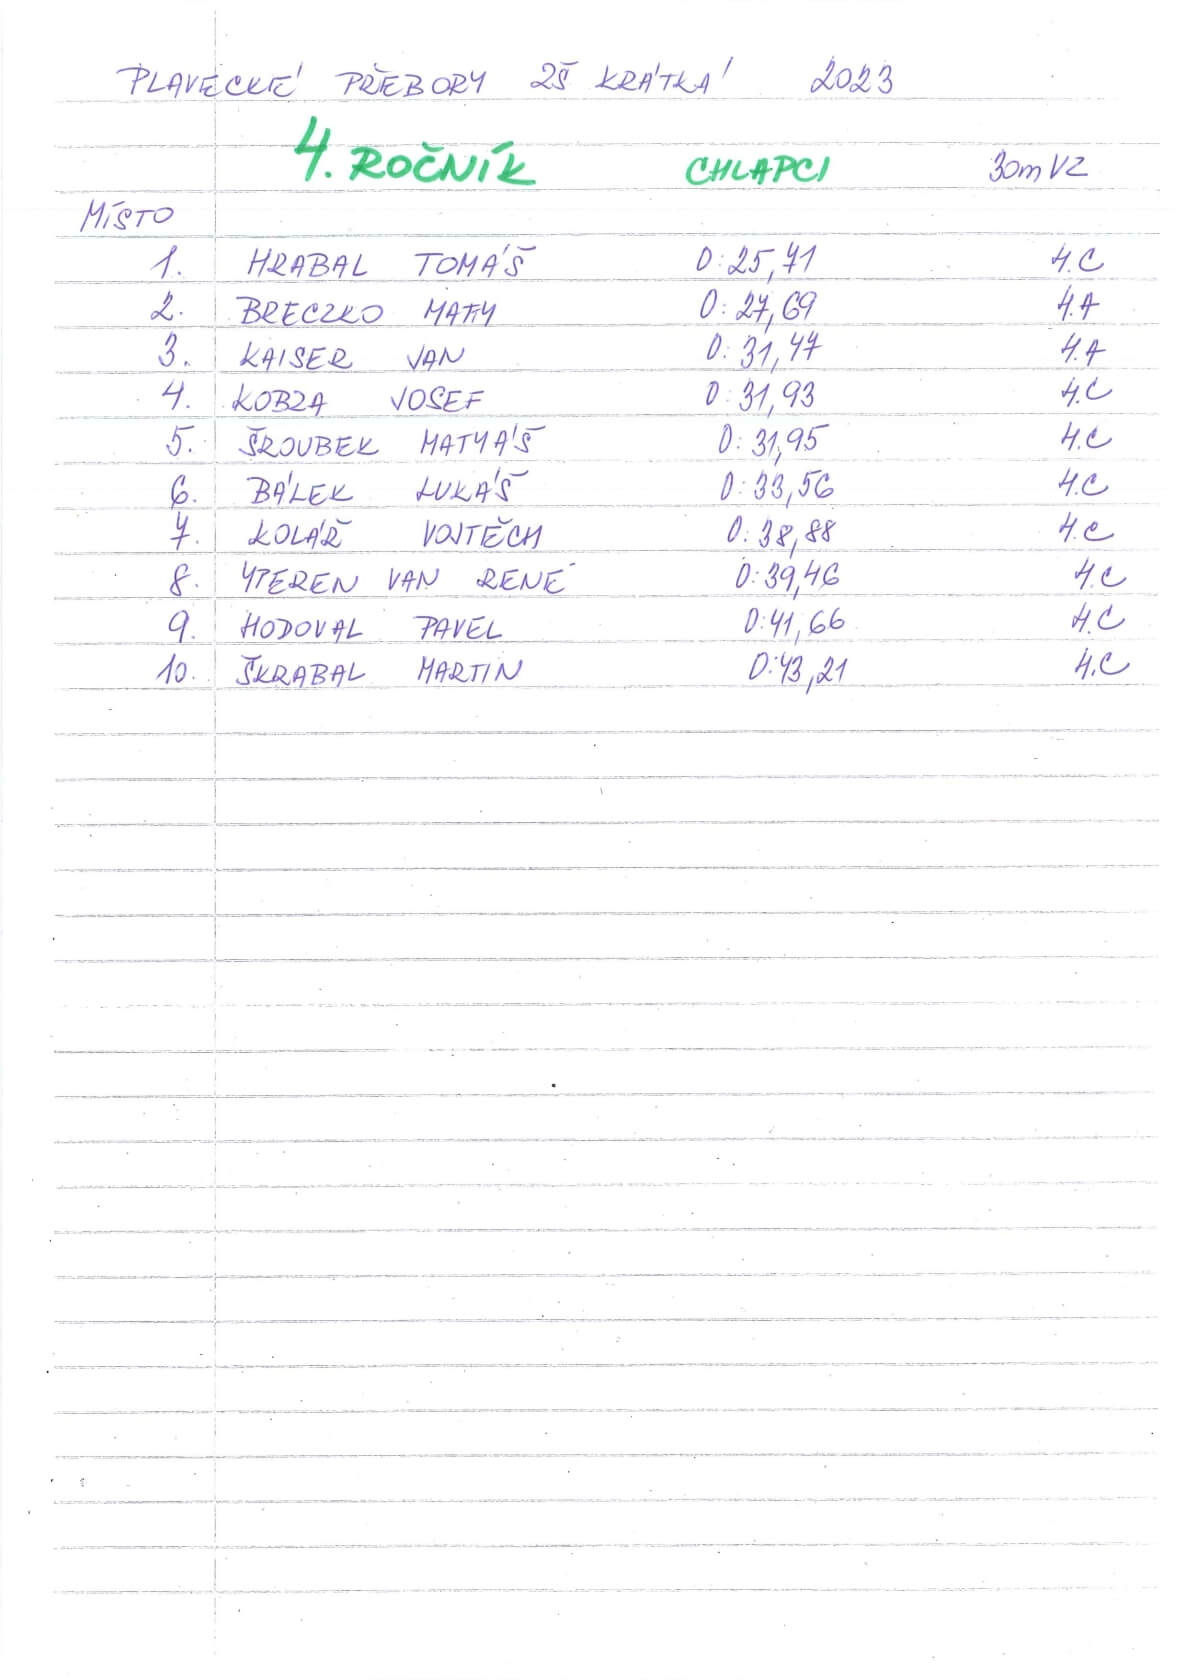 PLAVECKÉ PŘEBORY ZŠ KRÁTKÁ 2023
4. ROČNÍK CHLAPCI 30m VZ
MÍSTO
1. HRABAL TOMÁŠ 0:25,71 4.C
2. BRECZKO MATTY 0:27,69 4.A
3. KAISER JAN 0:31,47 4.A
4. KOBZA JOSEF 0:31,93 4.C
5. ŠROUBEK MATYÁŠ 0:31,95 4.C
6. BÁLEK LUKÁŠ 0:33,56 4.C
7. KOLÁŘ VOJTĚCH 0:38,88 4.C
8. YPEREN VAN RENÉ 0:39,46 4.C
9. HODOVAL PAVEL 0:41,66 4.C
10. ŠKRABAL MARTIN 0:43,21 4.C